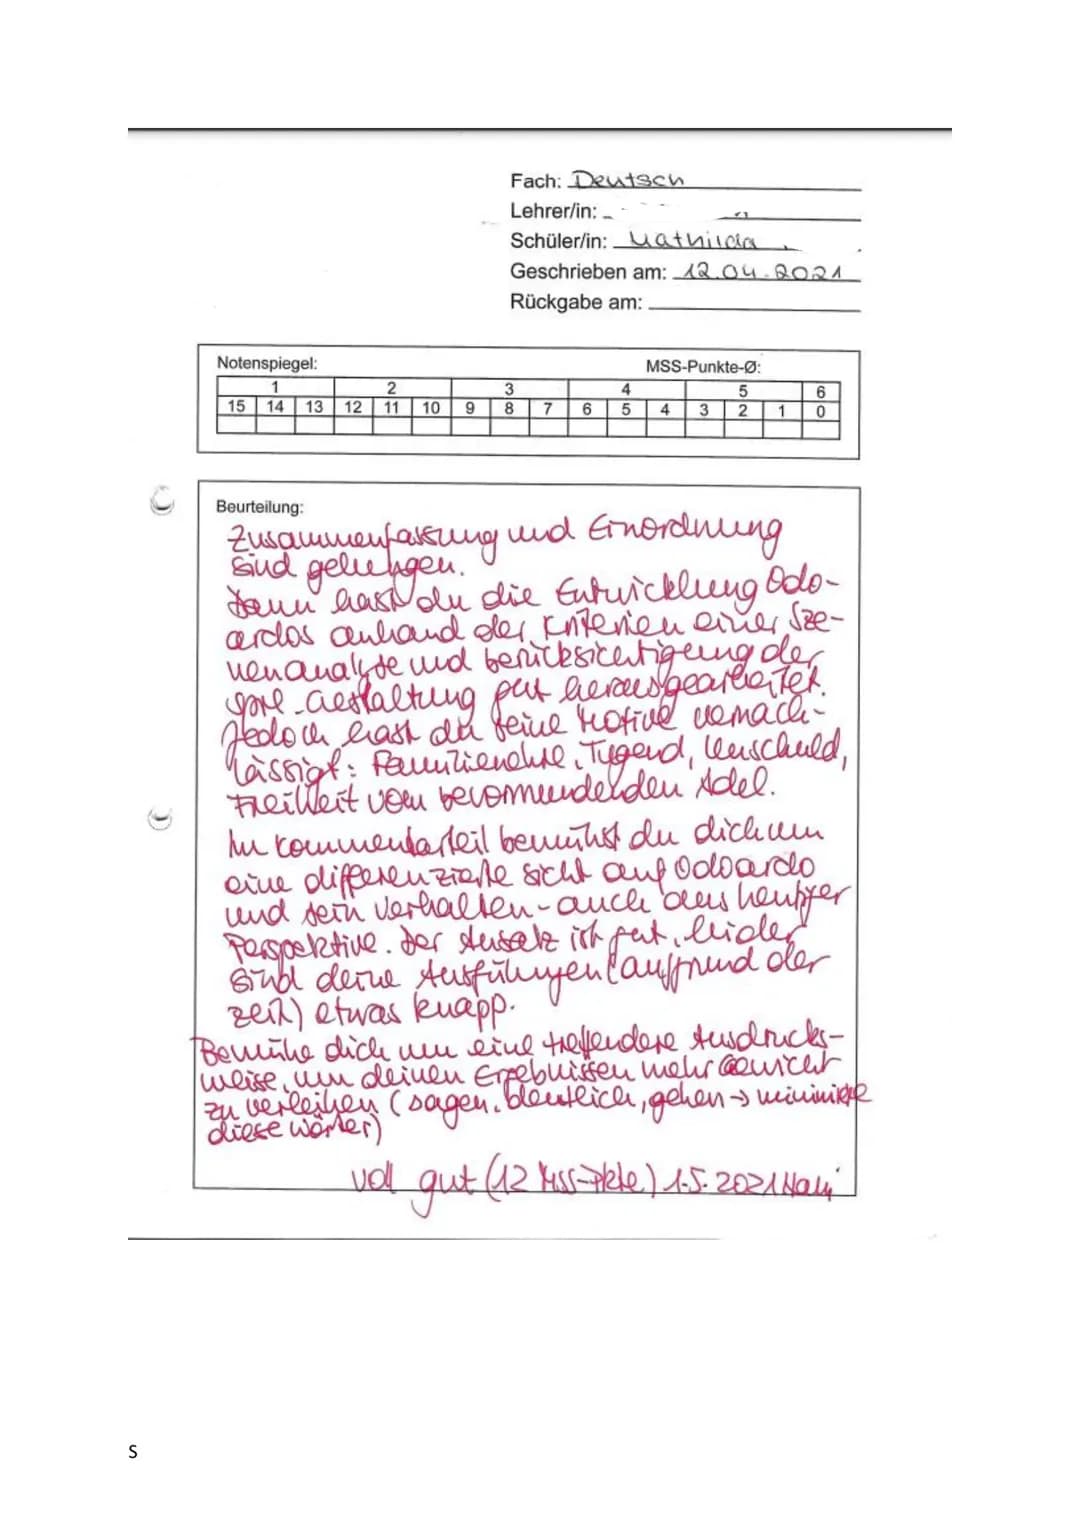 Fach: Deutsch
Lehrer/in:
Schüler/in: Mathilda
Geschrieben am: 12.04.2021
Rückgabe am:
Notenspiegel: MSS-Punkte-Ø:
1 2 3 4 5 6
15 14 13 12 11 10 9 8 7 6 5 4 3 2 1 0
Beurteilung:
Zusammenfassung und Einordnung
sind gelungen.
Dann hast du die Entwicklung Odo-
ardos anhand der Kriterien einer Sze-
nenanalyse und berücksichtigung der
sprl. Gestaltung gut herausgearbeitet.
Jedoch hast du seine Motive vernach-
lässigt: Familienehre, Tugend, Unschuld,
Freiheit vom bevormundenden Adel.
Im Kommentarteil bemühst du dich um
eine differenzierte Sicht auf Odoardo
und sein Verhalten - auch aus heutiger
Perspektive. Der Ansatz ist gut, leider
sind deine Ausführungen (aufgrund der
Zeit) etwas knapp.
Bemühe dich um eine treffendere Ausdrucks-
weise, um deinen Ergebnissen mehr Gewicht
zu verleihen (sagen, deutlich, gehen → minimiere
diese Wörter)
voll gut (12 MSS-Pkte) 1.5.2021
S